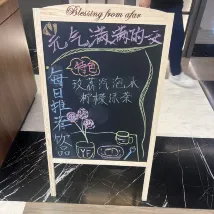 Blessing from afar
元气满满的一天
特色
每日推荐饮品
玫荔汽泡水
柠檬绿茶